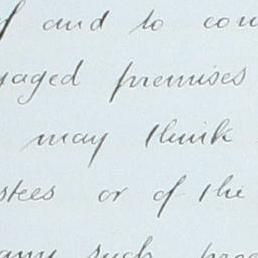 f and to con
gaged premises
may think
stees or of the
any such proc